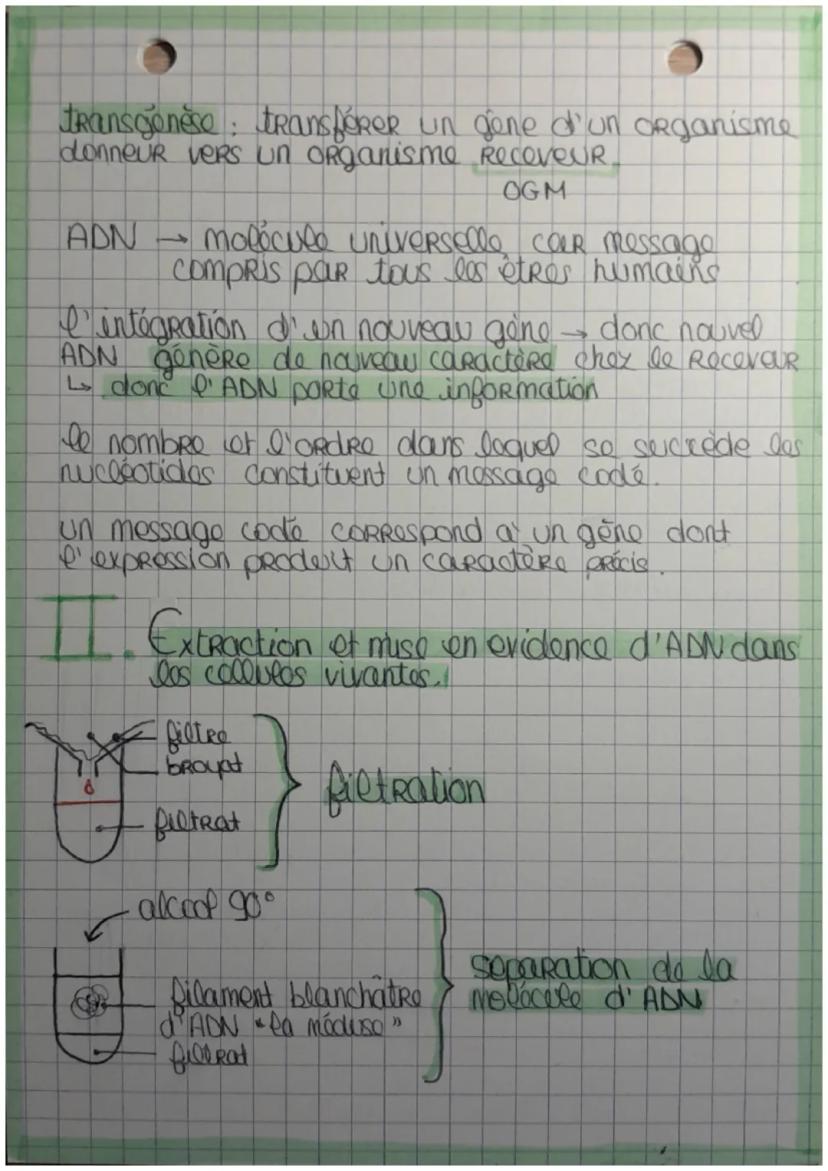 transgénèse : transférer un gène d'un organisme
donneur vers un organisme receveur.
OGM
ADN → molécule universelle, car message
compris par tous les êtres humains
l'intégration d'un nouveau gène → donc nouvel
ADN génère de nouveau caractère chez le receveur
↳ donc l'ADN porte une information
le nombre et l'ordre dans lequel se succède les
nucléotides constituent un message codé.
un message codé correspond à un gène dont
l'expression produit un caractère précis.
II. Extraction et mise en evidence d'ADN dans
les cellules vivantes.
filtre
broyat
filtrat
filtration
alcool 90°
filament blanchâtre
d'ADN "la méduse"
filtrat
separation de la
molécule d'ADN